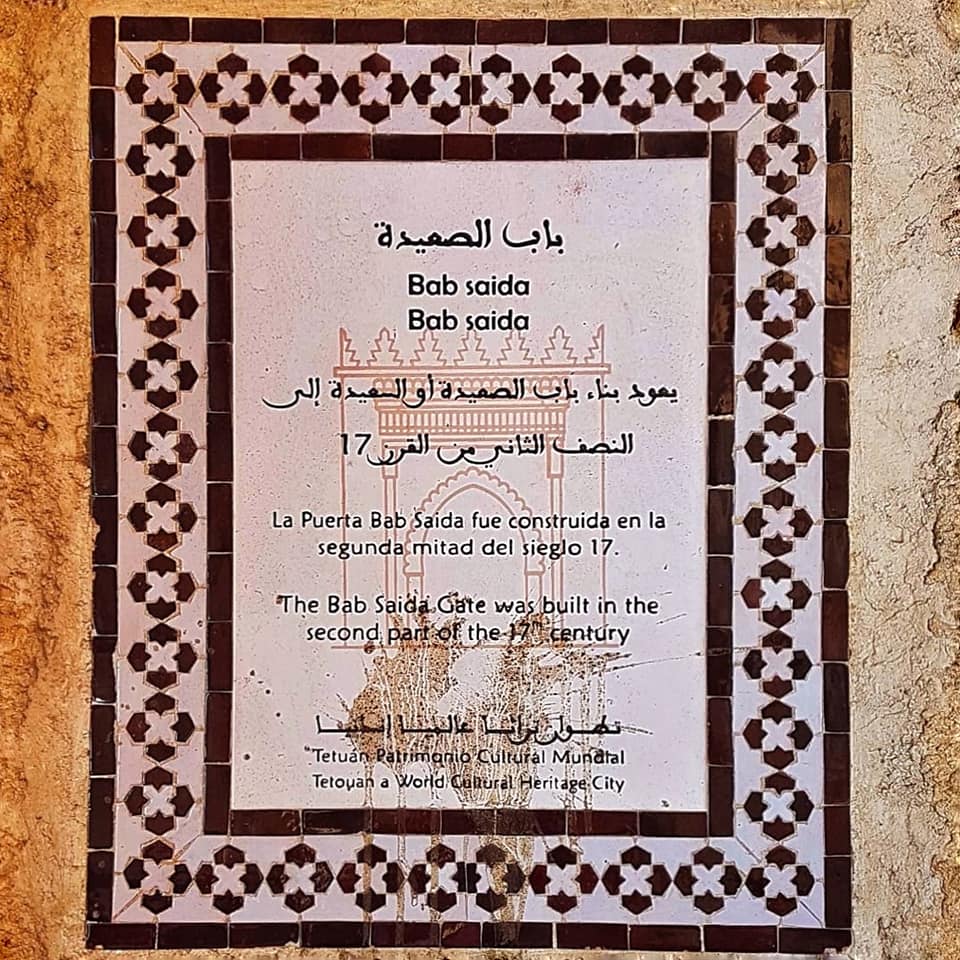 باب الصعيدة
Bab saida
Bab saida
يعود بناء باب الصعيدة أو السعيدة إلى
النصف الثاني من القرن 17
La Puerta Bab Saida fue construida en la
segunda mitad del sieglo 17.
The Bab Saida Gate was built in the
second part of the 17th century
تطوان تراثا عالميا إنسانيا
Tetuán Patrimonio Cultural Mundial
Tetouan a World Cultural Heritage City